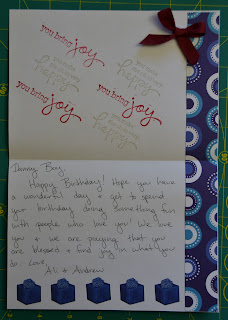 you bring joy
happy
you bring joy
happy
you bring joy
happy
you bring joy
happy
Danny Boy,
Happy Birthday! Hope you have
a wonderful day & get to spend
your birthday doing something fun
with people who love you! We love
you & we are praying that you
are blessed & find joy in what you
do. Love,
Ali & Andrew